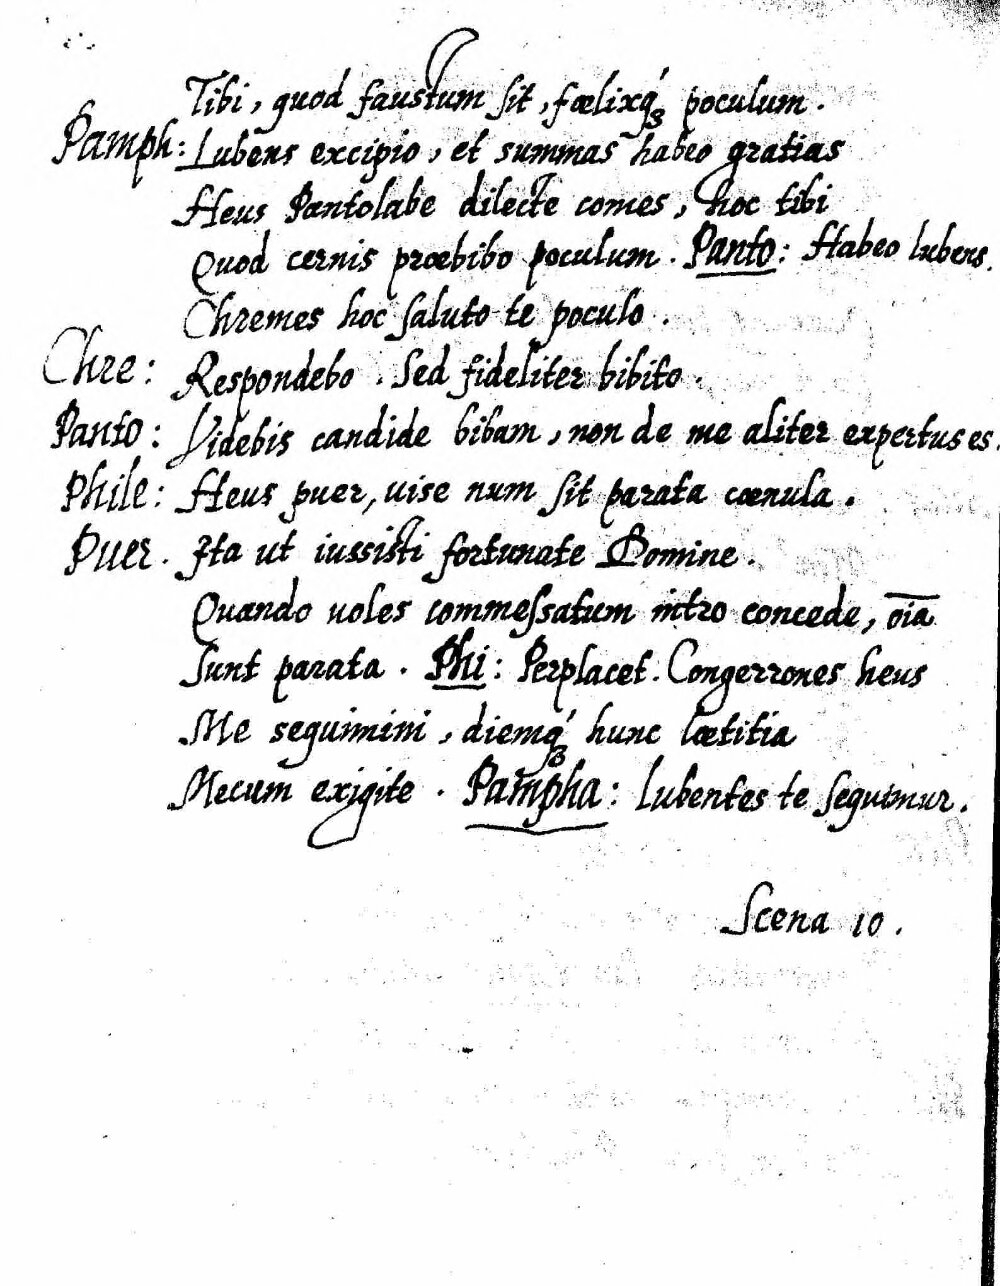 Tibi, quod faustum sit, fœlixq́ꝫ poculum.
Pamph: Lubens excipio, et summas habeo gratias
Heus Pantolabe dilecte comes, hoc tibi
Quod cernis præbibo poculum. Panto: Habeo lubens.
Chremes hoc saluto te poculo.
Chre: Respondebo. Sed fideliter bibito.
Panto: Videbis candide bibam, non de me aliter expertus es.
Phile: Heus puer, uise num sit parata cœnula.
Puer. Ita ut iussisti fortunate Domine.
Quando uoles commeſsatum intro concede, oīa
Sunt parata. Phi: Perplacet. Congerrones heus
Me sequimini, diemq́ꝫ hunc lætitia
Mecum exigite. Pampha: Lubentes te sequimur.
Scena 10.